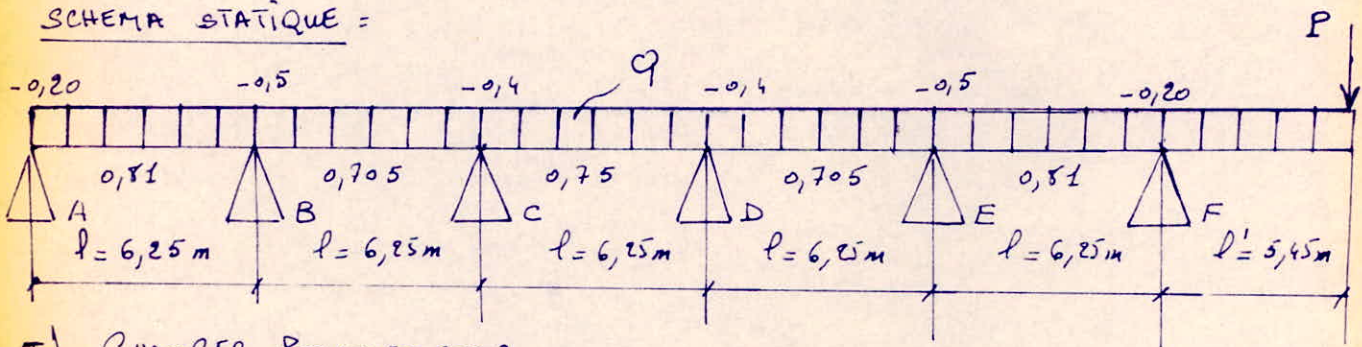 SCHEMA STATIQUE =
P
q
-0,20 -0,5 -0,4 -0,4 -0,5 -0,20
0,81 0,705 0,75 0,705 0,81
A B C D E F
l = 6,25 m l = 6,25 m l = 6,25 m l = 6,25 m l = 6,25 m l' = 5,45 m